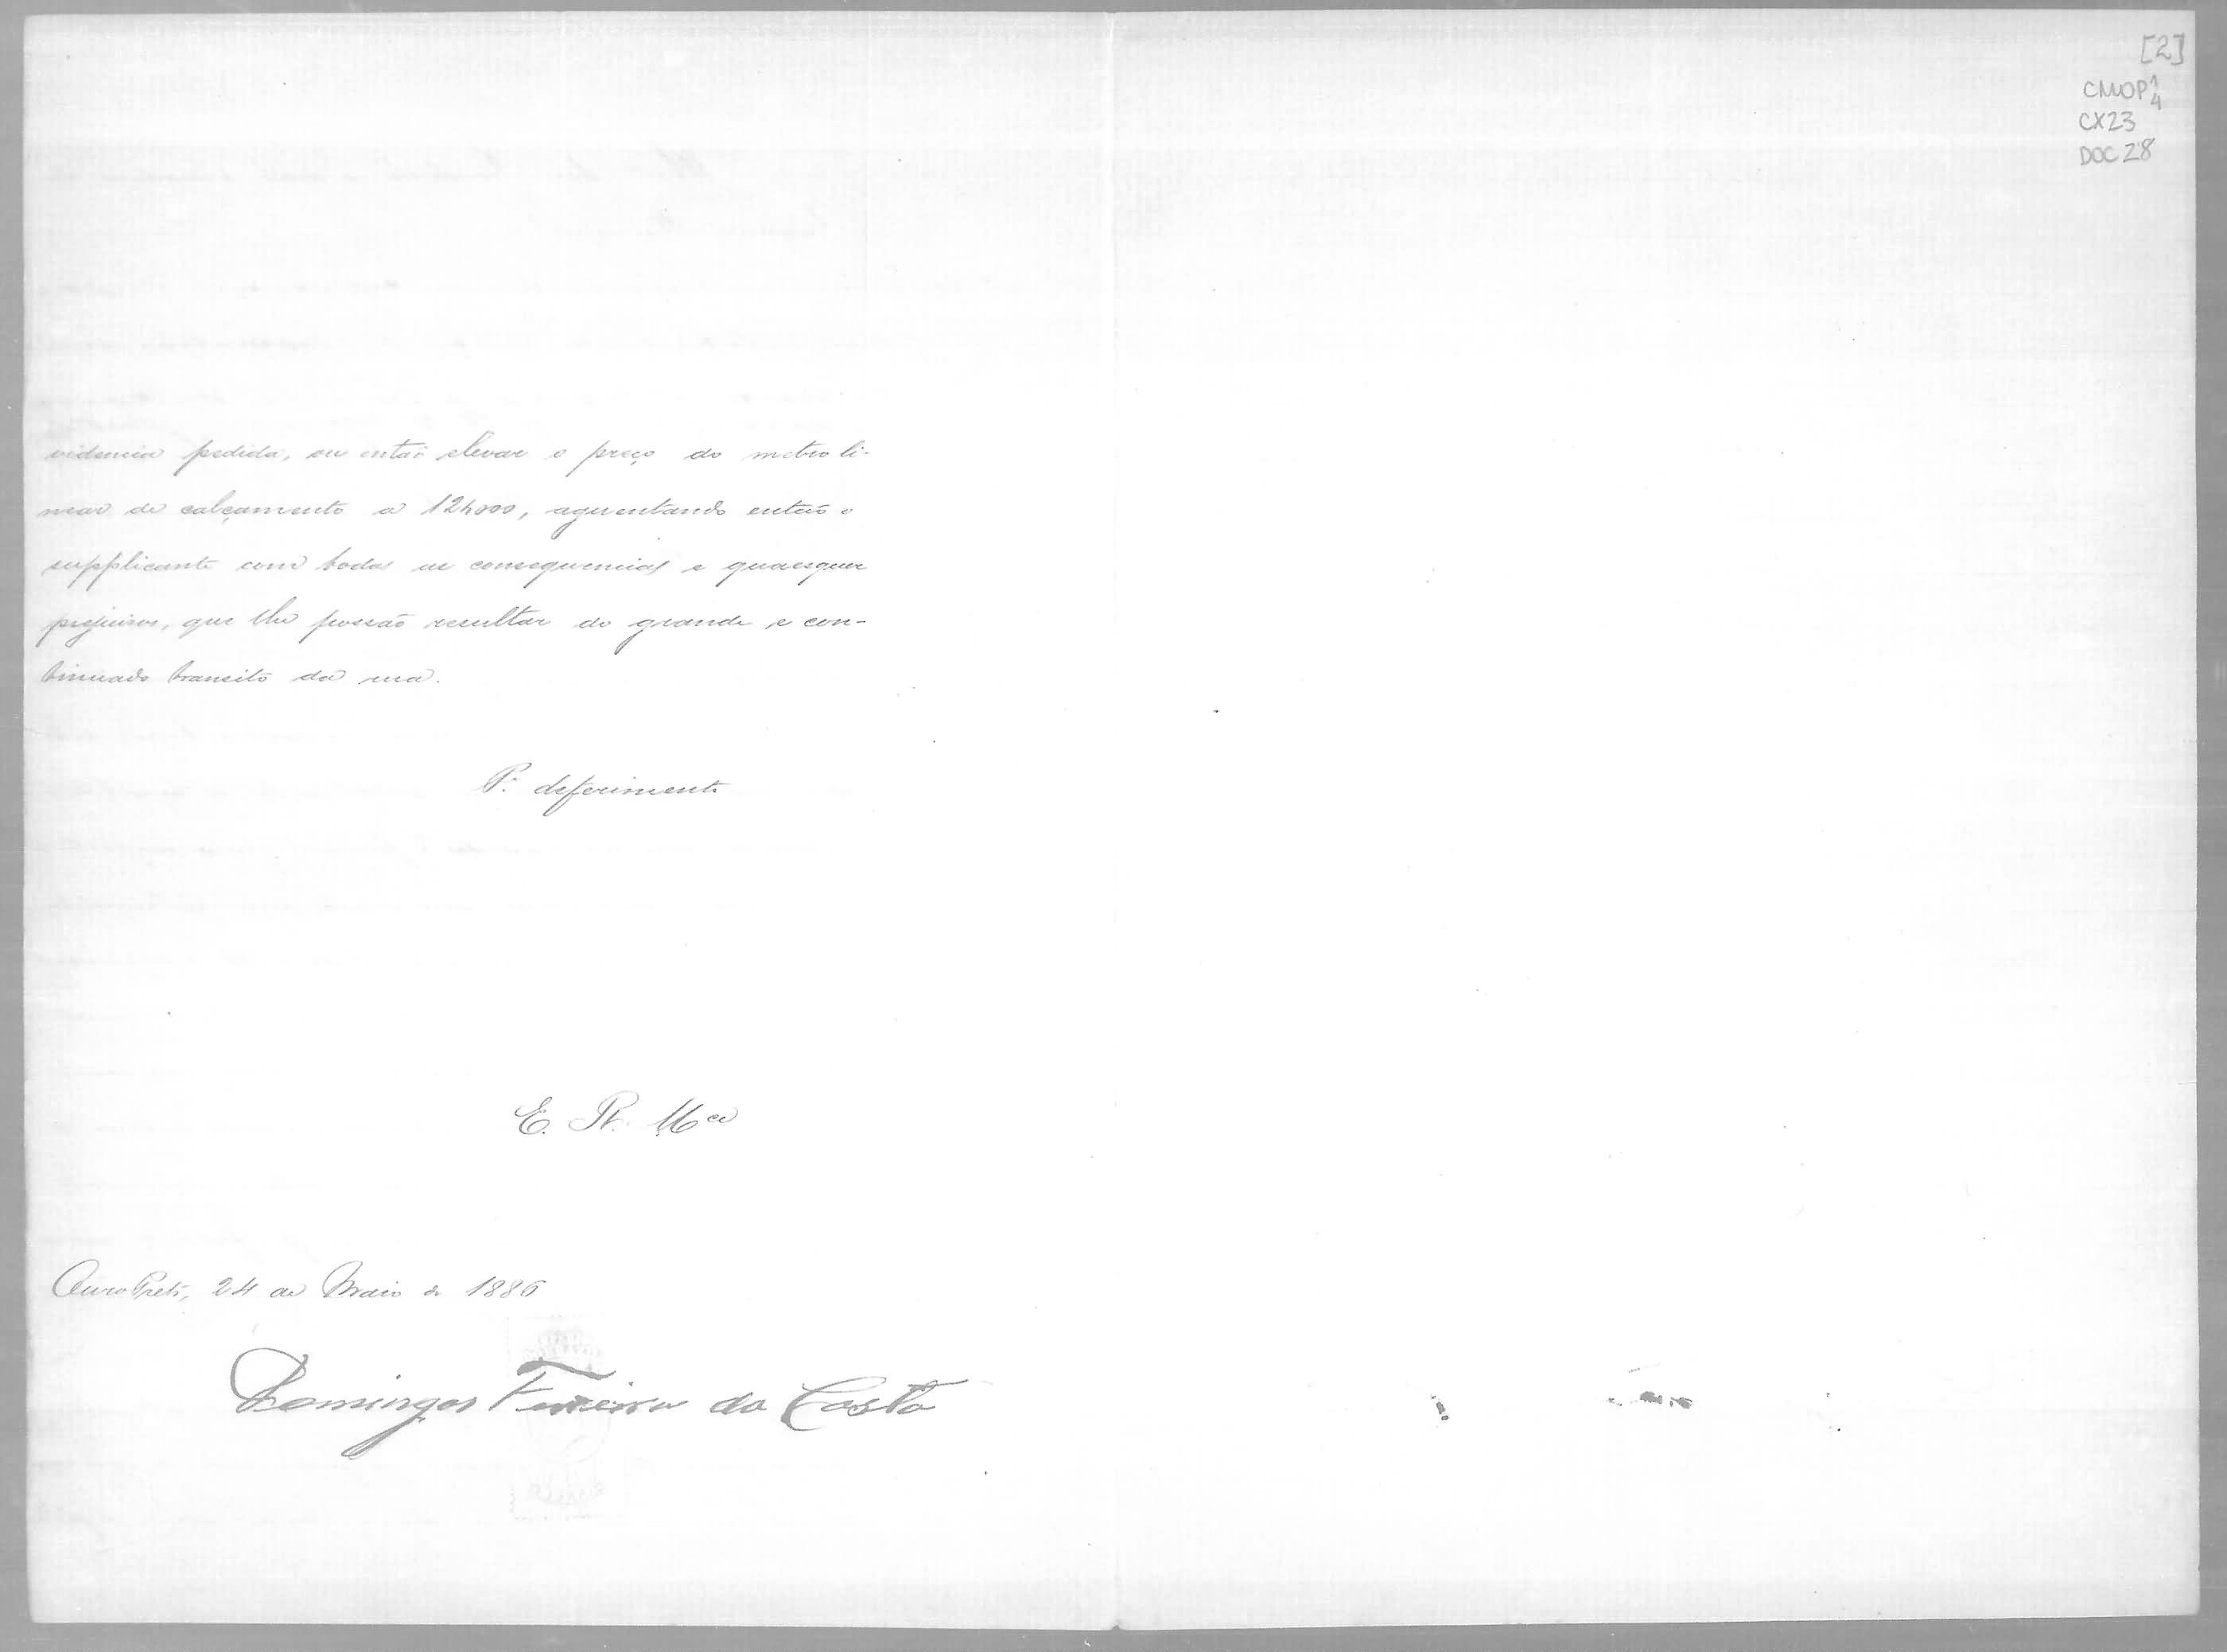 [2]
CMOP 1/4
CX23
DOC 28
videncia pedida, ou então elevar o preço do metro li-
near de calçamento a 12$000, aguentando então o
supplicante com todas as consequencias e quaesquer
prejuisos, que lhe possão resultar do grande e con-
tinuado transito da rua.
P. deferimento
E. R. Mce
Ouro Preto, 24 de Maio de 1886
Domingos Ferreira da Costa